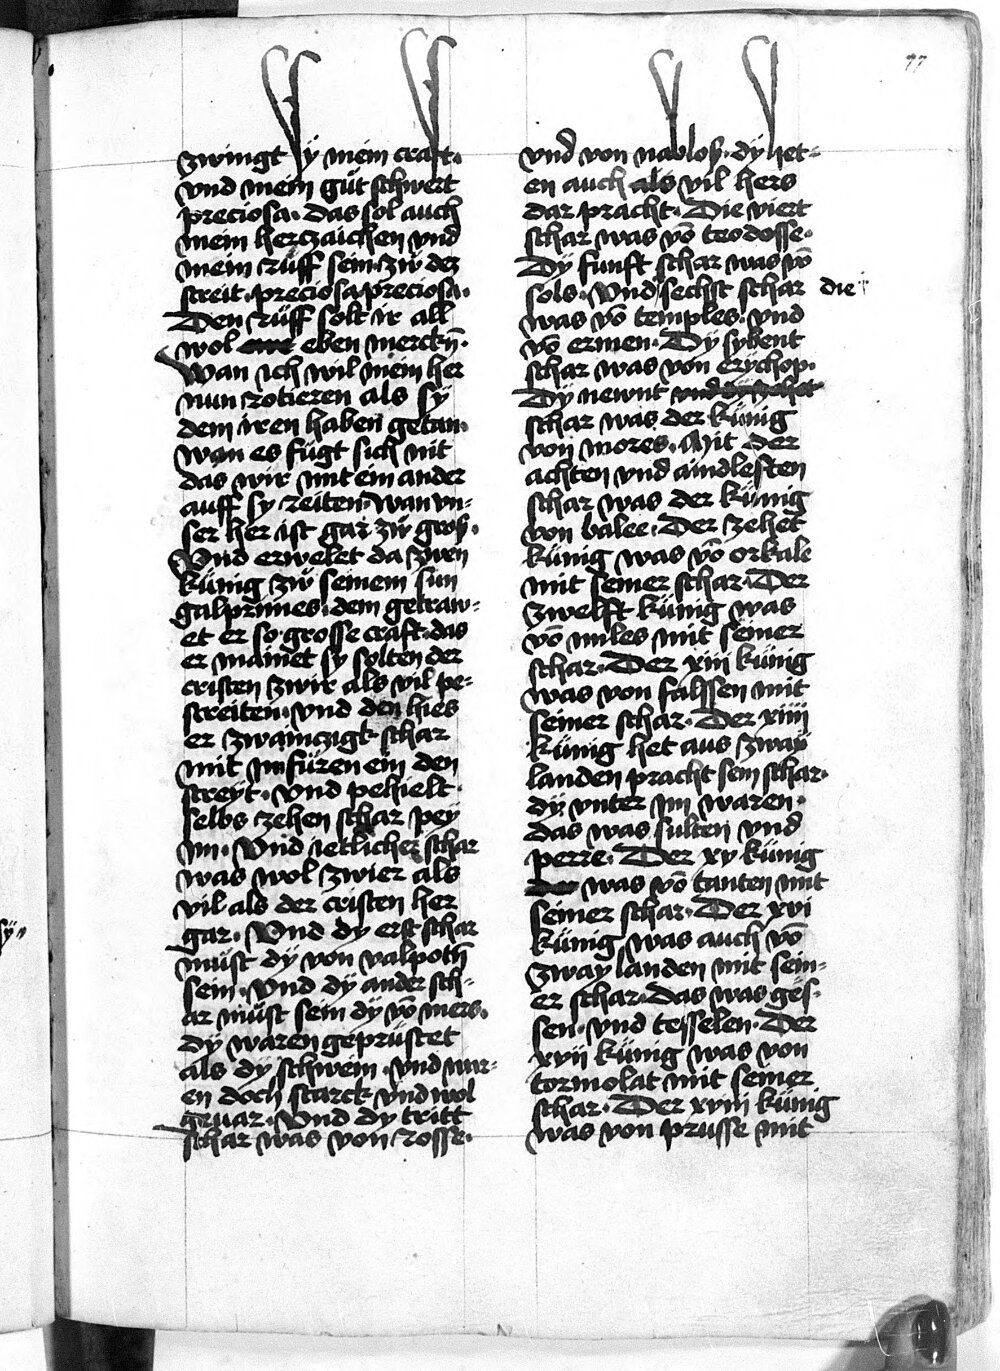 77
zwingt sy mein craft.
vnd mein gůt schwert
preciosa. das sol auch
mein herczaichen vnd
mein rüff sein. zw̋ dez
streit. preciosa preciosa.
Den rüff solt ir all
wol eben merckn̄.
Wan ich wil mein her
nun rotieren als sy
dem iren haben getan.
wan es fügt sich nit
das wir mit ein ander
auff sy reiten. wan vn=
ser her ist gar zw̋ groß.
Vnd erwelet da zwen
künig zw̋ seinem sun
galprimes. dem getraw=
et er so grosse craft. das
er mainet sy solten der
cristen zwir als vil pe=
streiten. vnd den hies
er zwainczigk schar
mit im füren ein den
streyt. Vnd pehielt
selbs zehen schar pey
im. Vnd ietlicher schar
was wol zwier als
vil als der cristen her
gar. Vnd dy erst schar
müst dÿ von valpoth
sein. Vnd dÿ ander sch=
ar müst sein dÿ vō mers.
dÿ waren geprüstet
als dÿ schwein. vnd war=
en doch starck vnd wol
gevar. Vnd dy tritt
schar was von rosse.
vnd von nabloß. dÿ het=
en auch als vil hers
dar pracht. Die viert
schar was vō teodosse.
Dÿ funft schar was vō
sols. Vnd sechst schar die
was vō temples. vnd
vō ermen. Dÿ sybent
schar was von erychop.
Dÿ newnt
schar was der künig
von mores. Mit der
achten vnd aindleften
schar was der künig
von balee. Der zehet
künig was vō orkale
mit seiner schar. Der
zwelfft künig was
vō niles mit seiner
schar. Der xiii künig
was von falssen mit
seiner schar. Der xiiii
künig het aus zwaÿ
landen pracht sein schar.
dÿ vnter im waren.
das was sulten vnd
perre. Der xv künig
was vō tanten mit
seiner schar. Der xvi
künig was auch vō
zway landen mit sein=
er schar. das was ges=
sen. vnd tesselen. Der
xvii künig was von
tormolat mit seiner
schar. Der xviii künig
was von prusse mit